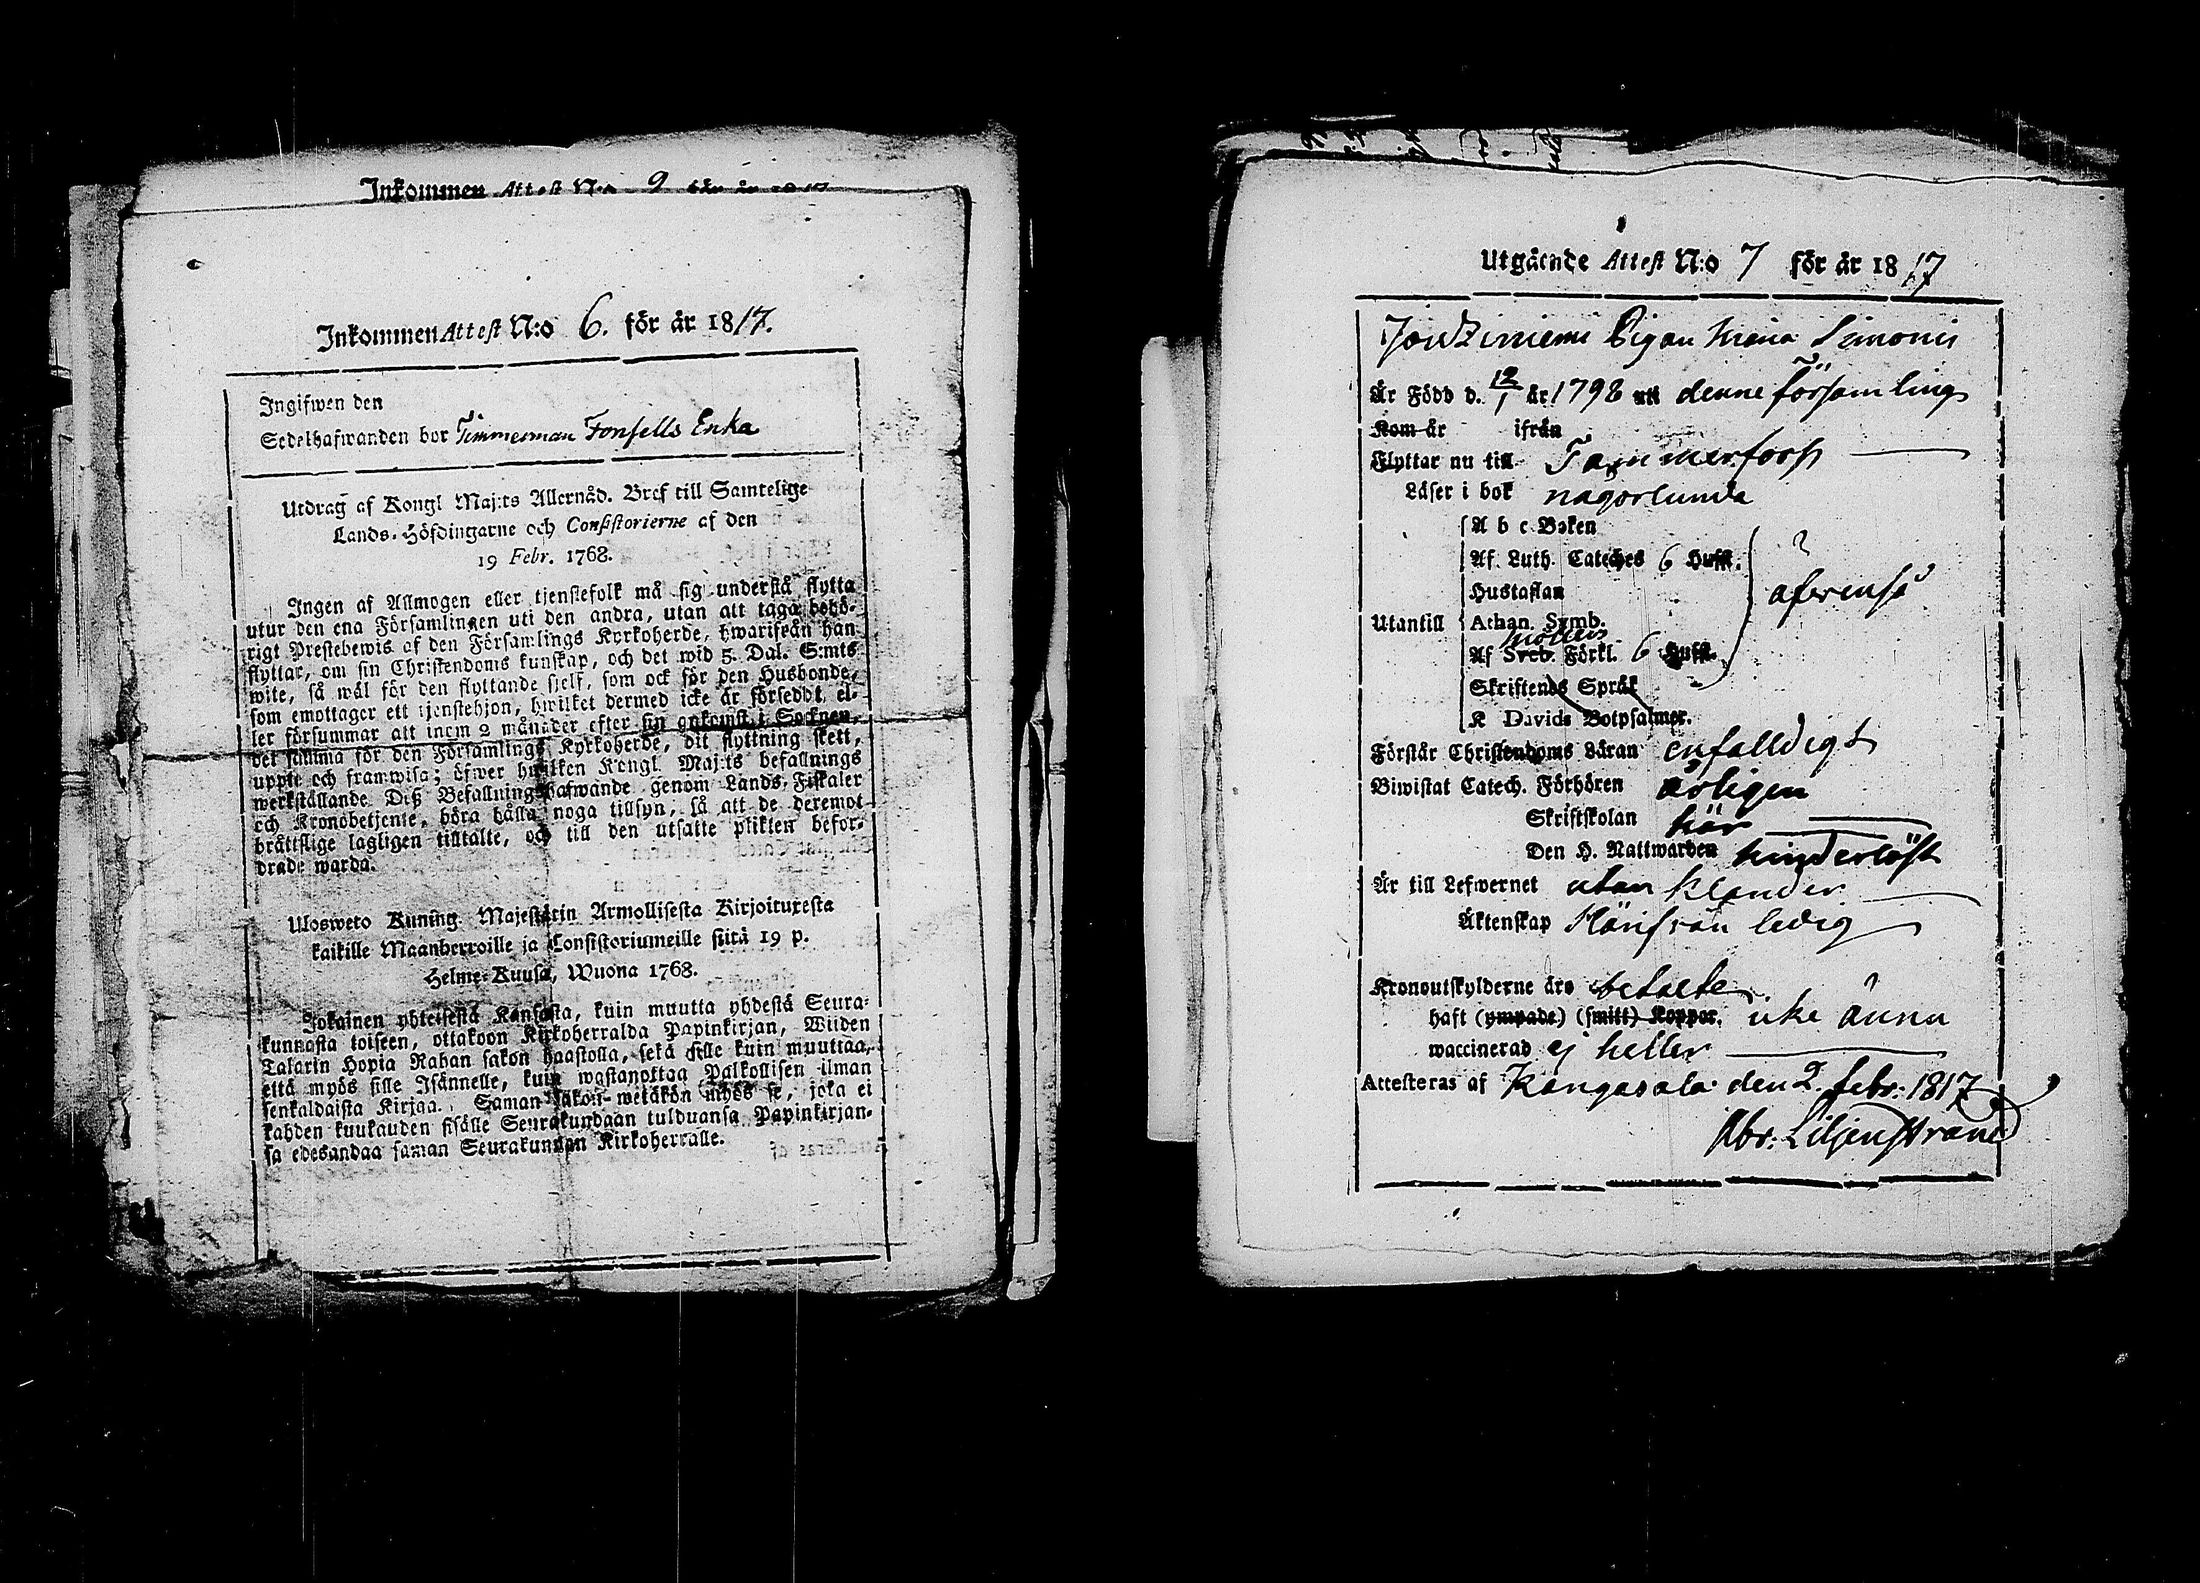 Inkommen Attest N:o 9 för år 1817
Inkommen Attest N:o 6. för år 1817.
Ingifwen den
Sedelhafwanden bor Timmerman Fonsells Enka
Utdrag af Kongl Maj:ts Allernåd. Bref till Samtelige
Lands-Höfdingarne och Consistorierne af den
19 Febr. 1768.
Ingen af Allmogen eller tjenstefolk må sig understå flytta
utur den ena Församlingen uti den andra, utan att taga behö-
rigt Prestebewis af den Församlings Kyrkoherde, hwarifrån han
flyttar, om sin Christendoms kunskap, och det wid 5. Dal. S:mts
wite, så wäl för den flyttande sjelf, som ock för den Husbonde,
som emottager ett tjenstehjon, hwilket dermed icke är försedt, el-
ler försummar att inom 2 månader efter sin ankomst i Socknen,
det samma för den Församlings Kyrkoherde, dit flyttning skett,
uppte och framwisa; öfwer hwilken Kongl Maj:ts befallnings
werkställande Diß Befallningshafwande genom Lands, Fiskaler
och Kronobetjente, böra hålla noga tillsyn, så att de deremot
bråttslige lagligen tilltalte, och till den utsatte plikten befor-
drade warda.
Ulosweto Kuning. Majestätin Armollisesta Kirjoituxesta
kaikille Maanherroille ja Consistoriumeille siitä 19 p.
Helme-Kuusa, Wuona 1768.
Jokainen yhteisestä Kansasta, kuin muutta yhdestä Seura-
kunnasta toiseen, ottakoon Kirkoherralda Papinkirjan, Wiiden
Talarin Hopia Rahan sakon haastolla, sekä sille kuin muuttaa,
että myös sille Isännelle, kuin wastanottaa Palkollisen ilman
senkaldaista Kirjaa. Saman sakon wetäkön myös se, joka ei
kahden kuukauden sisälle Seurakundaan tulduansa Papinkirjan-
sa edesandaa saman Seurakunnan Kirkoherralle.
Utgående Attest N:o 7 för år 1817
Pigan Maria Simonis
Är Född d. 12/1 år 1798 uti denne församling
Kom år ifrån
Flyttar nu till Tammerfors
Läser i bok någorlunda
A b c Boken
Af Luth. Cateches 6 Hufst.
Hustaflan
Utantill Athan. Symb.
Af Sveb. Förkl. 6 Hufst.
Skriftenes Språk
K Davids Botpsalmer.
Förstår Christendoms Läran enfalldigt
Biwistat Catech. Förhören årligen
Skriftskolan här
Den H. Nattwarden hinderlöst
Är till Lefwernet utan klander
Äktenskap Härifrån ledig
Kronoutskylderne äro betalte
haft (ympade) (smitt) Koppor, icke ännu
waccinerad ej heller
Attesteras af Kangasala den 2 febr: 1817
Abr: Liljenstrand